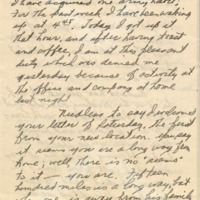 I have acquired one army habit.
For the past week I have been waking
up at 4:45. Today I got up at
that hour, and after having toast
and coffee, I am at this pleasant
duty which was denied me
yesterday because of activity at
the office and company at home
last night.
Needless to say I welcomed
your letter of Saturday, the first
from your new location. You say
it seems you are a long way from
home; well, there is no "seems"
to it — you are. Fifteen
hundred miles is a long way, but
one is away from his family